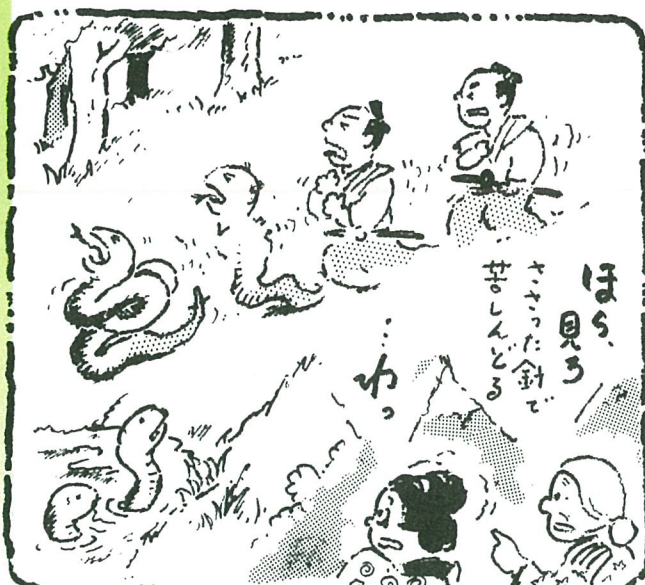 ほら、
見ろ
ささった針で
苦しんどる
…わっ